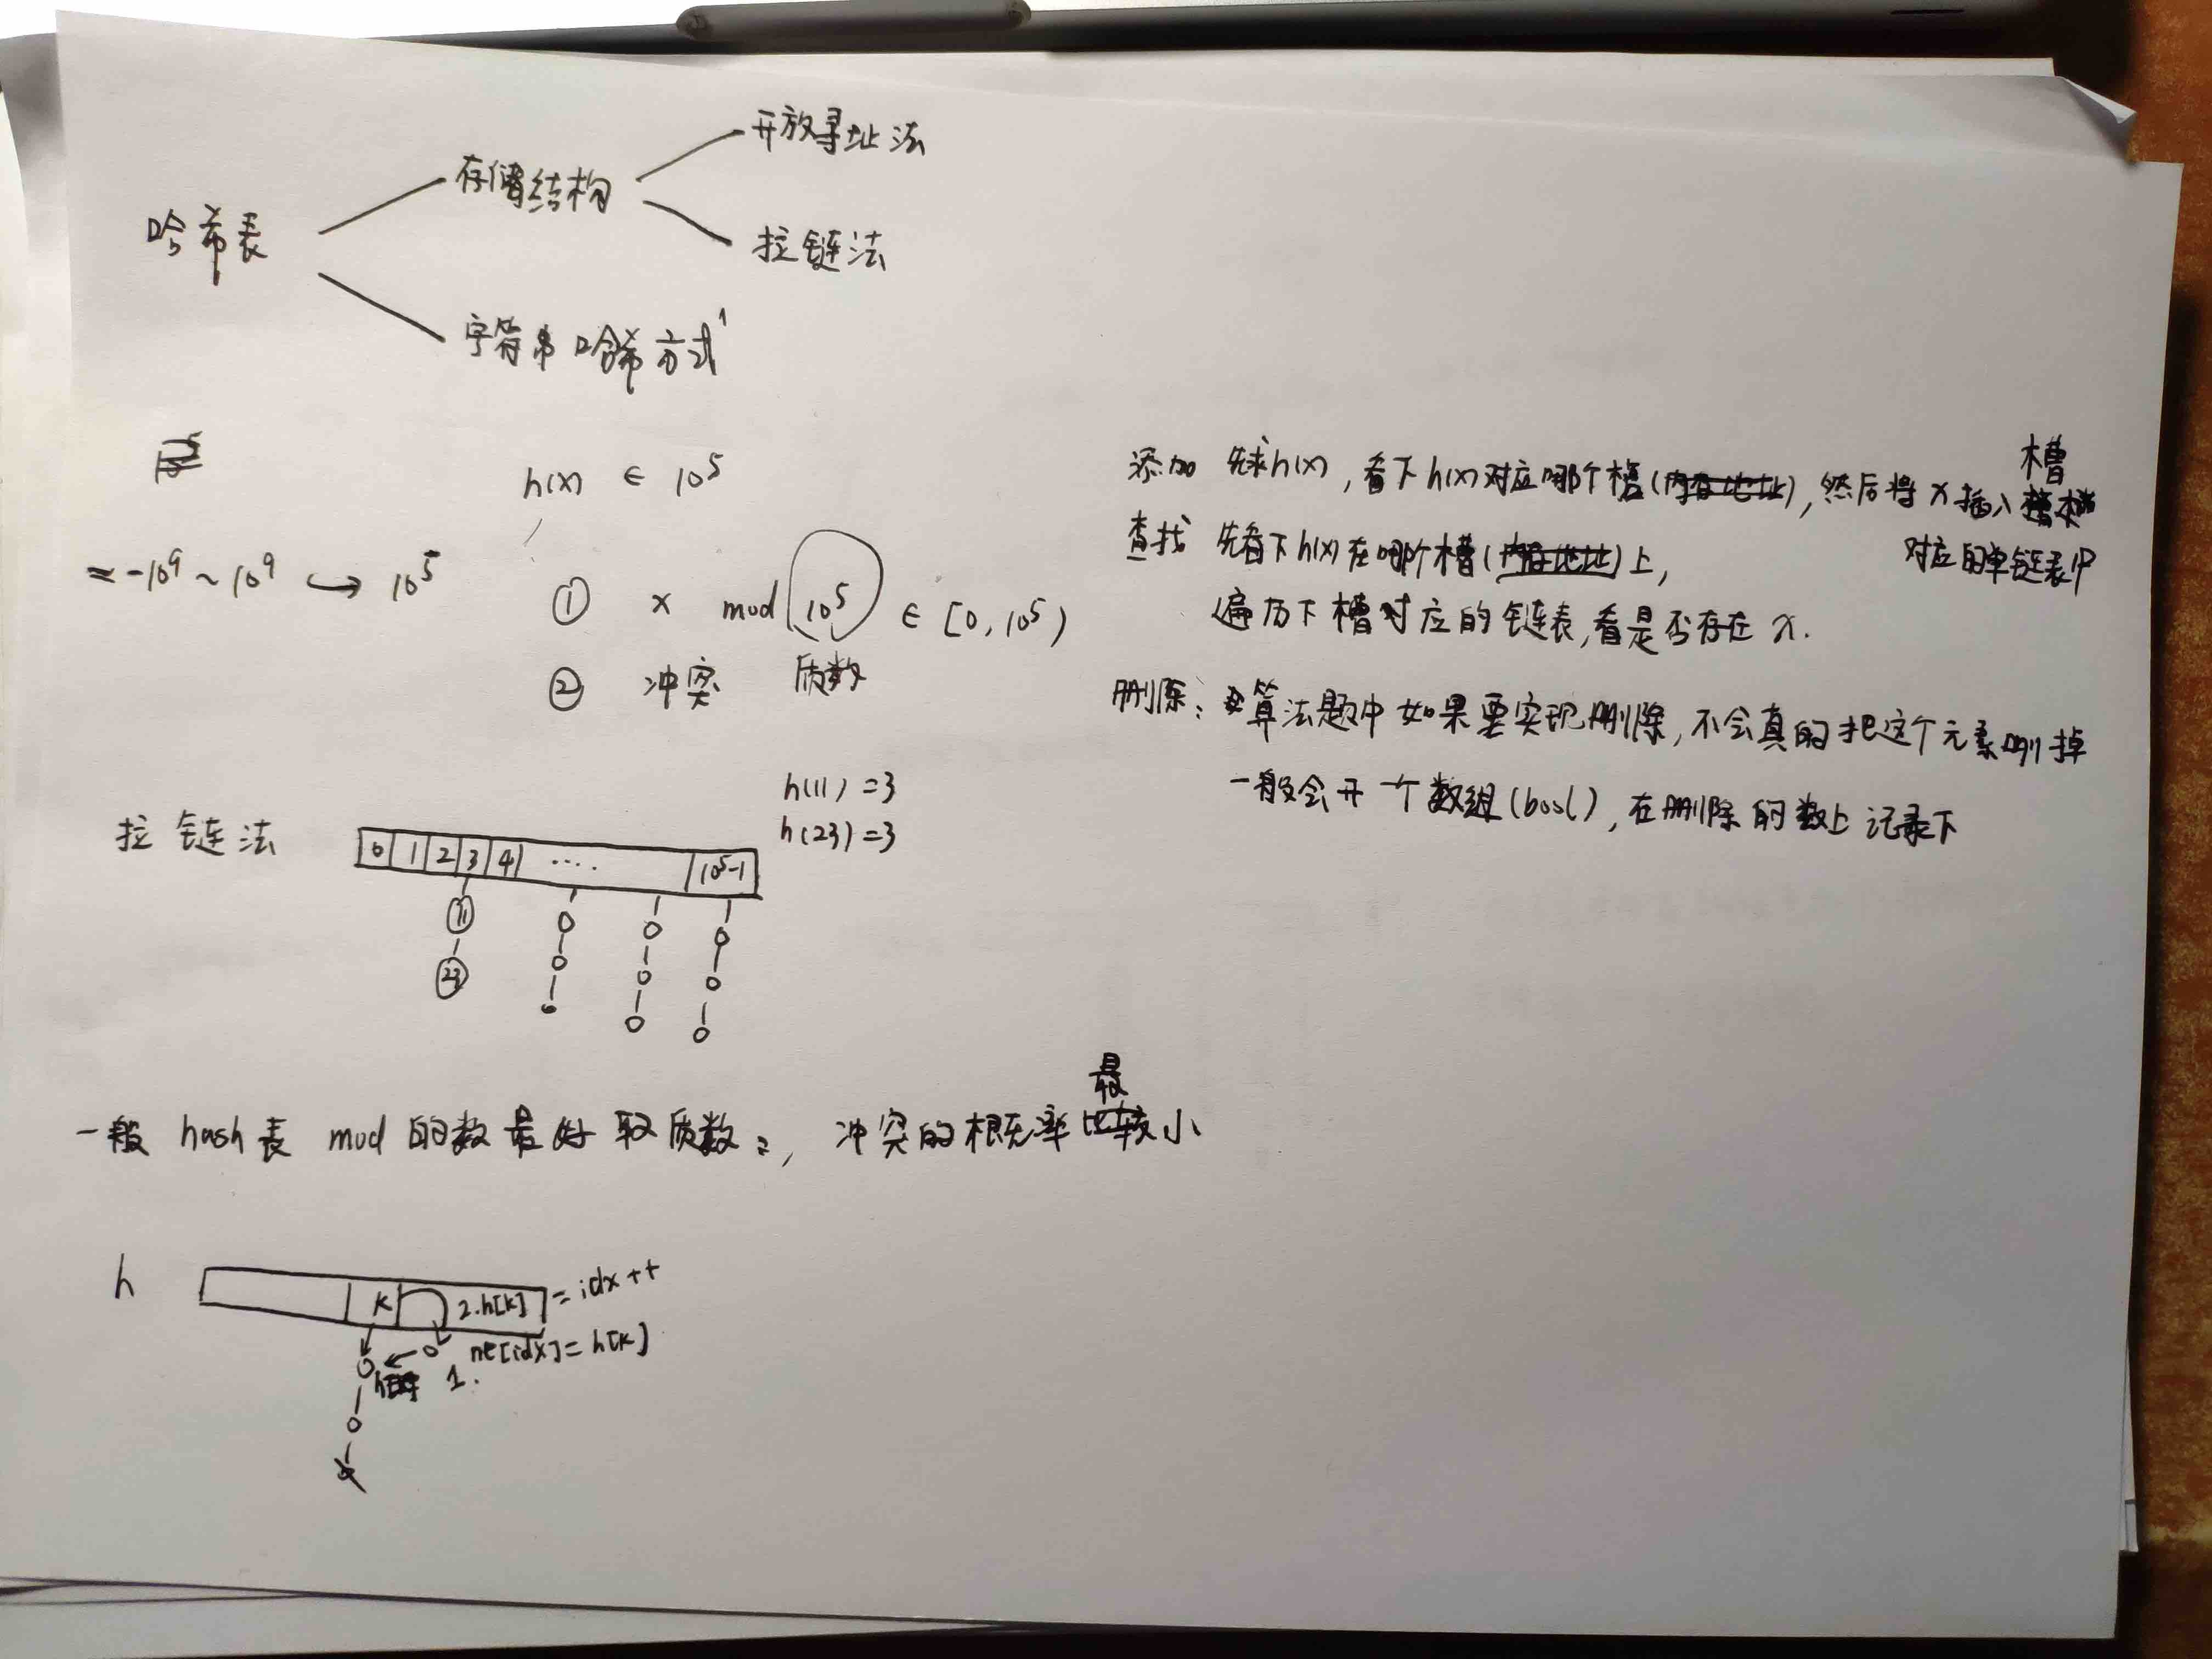 哈希表
存储结构
开放寻址法
拉链法
字符串哈希方式
h(x) ∈ 10⁵
-10⁹ ~ 10⁹ ↪ 10⁵
① x mod 10⁵ ∈ [0, 10⁵)
② 冲突 质数
拉链法
h(11) = 3
h(23) = 3
0 1 2 3 4 .... 10⁵-1
11
23
一般 hash表 mod 的数最好取质数, 冲突的概率最小
h
k 2.h[k] = idx++
1. ne[idx] = h[k]
添加 先求h(x), 看下h(x)对应哪个槽(内存地址), 然后将 x 插入槽
对应的单链表中
查找 先看下h(x)在哪个槽(内存地址)上,
遍历下槽对应的链表, 看是否存在 x.
删除: 算法题中如果要实现删除, 不会真的把这个元素删掉
一般会开一个数组(bool), 在删除的数上记录下